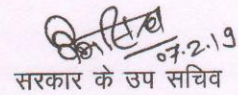 07.2.19
सरकार के उप सचिव